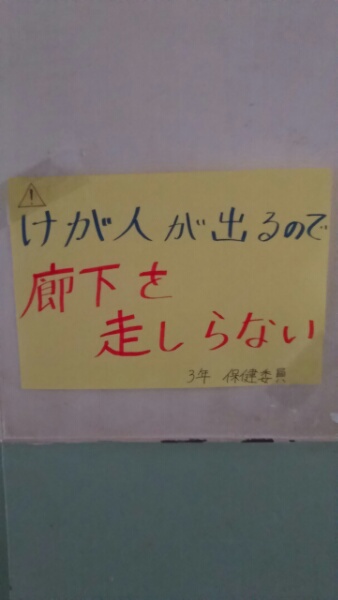 けが人が出るので
廊下を
走しらない
3年 保健委員